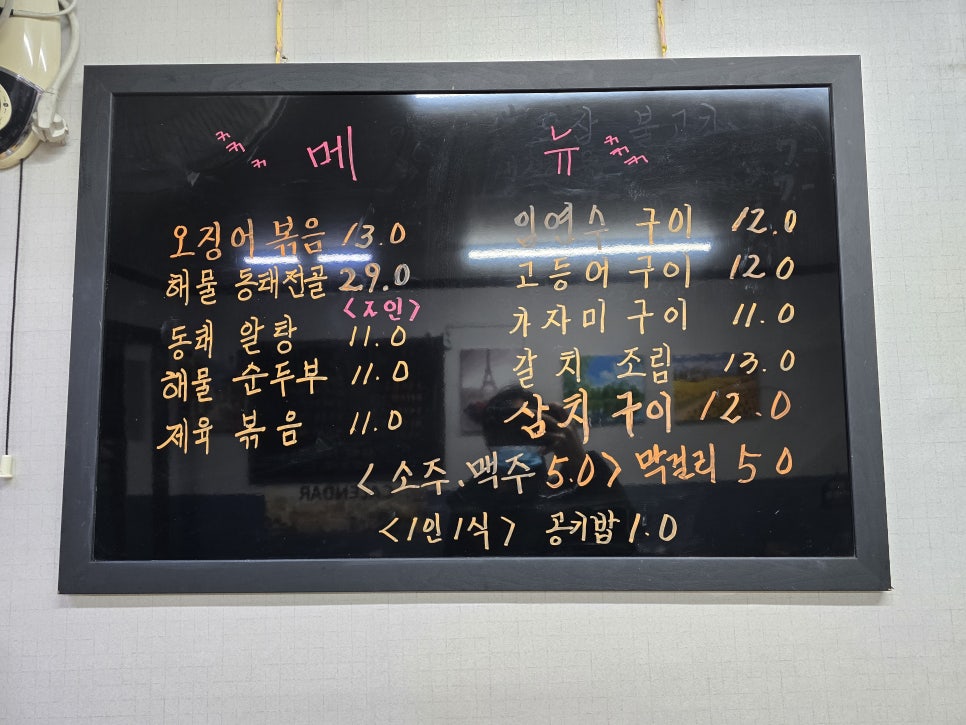 메 뉴
오징어 볶음 13.0
해물 동태전골 29.0
<2인>
동태 알탕 11.0
해물 순두부 11.0
제육 볶음 11.0
임연수 구이 12.0
고등어 구이 12.0
가자미 구이 11.0
갈치 조림 13.0
삼치구이 12.0
<소주.맥주 5.0> 막걸리 5 0
<1인 1식> 공기밥 1.0
CALENDAR